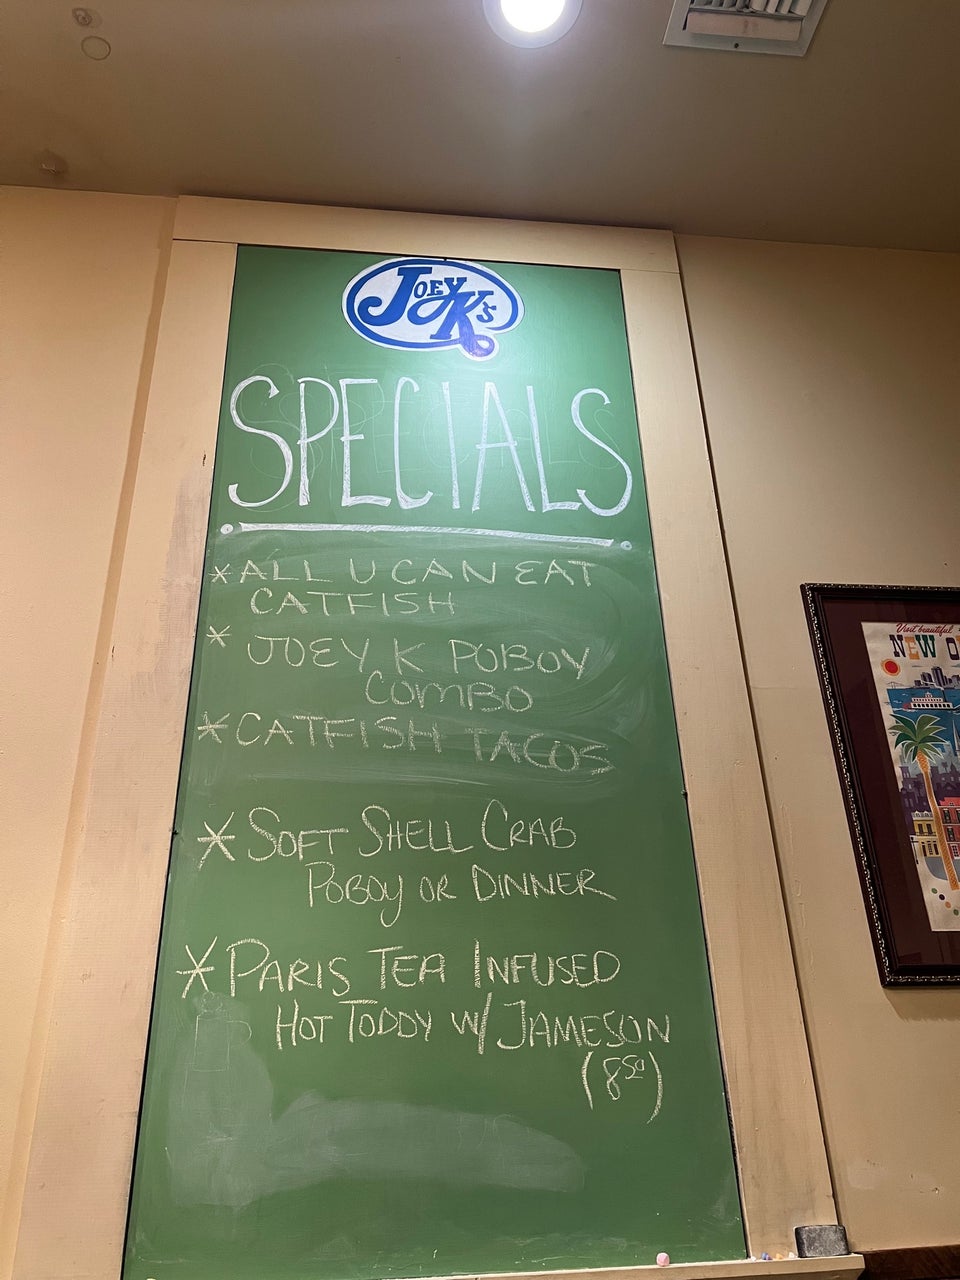 JOEY K's
SPECIALS
*ALL U CAN EAT
CATFISH
* JOEY K POBOY
COMBO
*CATFISH TACOS
*SOFT SHELL CRAB
POBOY OR DINNER
*PARIS TEA INFUSED
HOT TODDY w/ JAMESON
(8 50)
Visit beautiful
NEW O